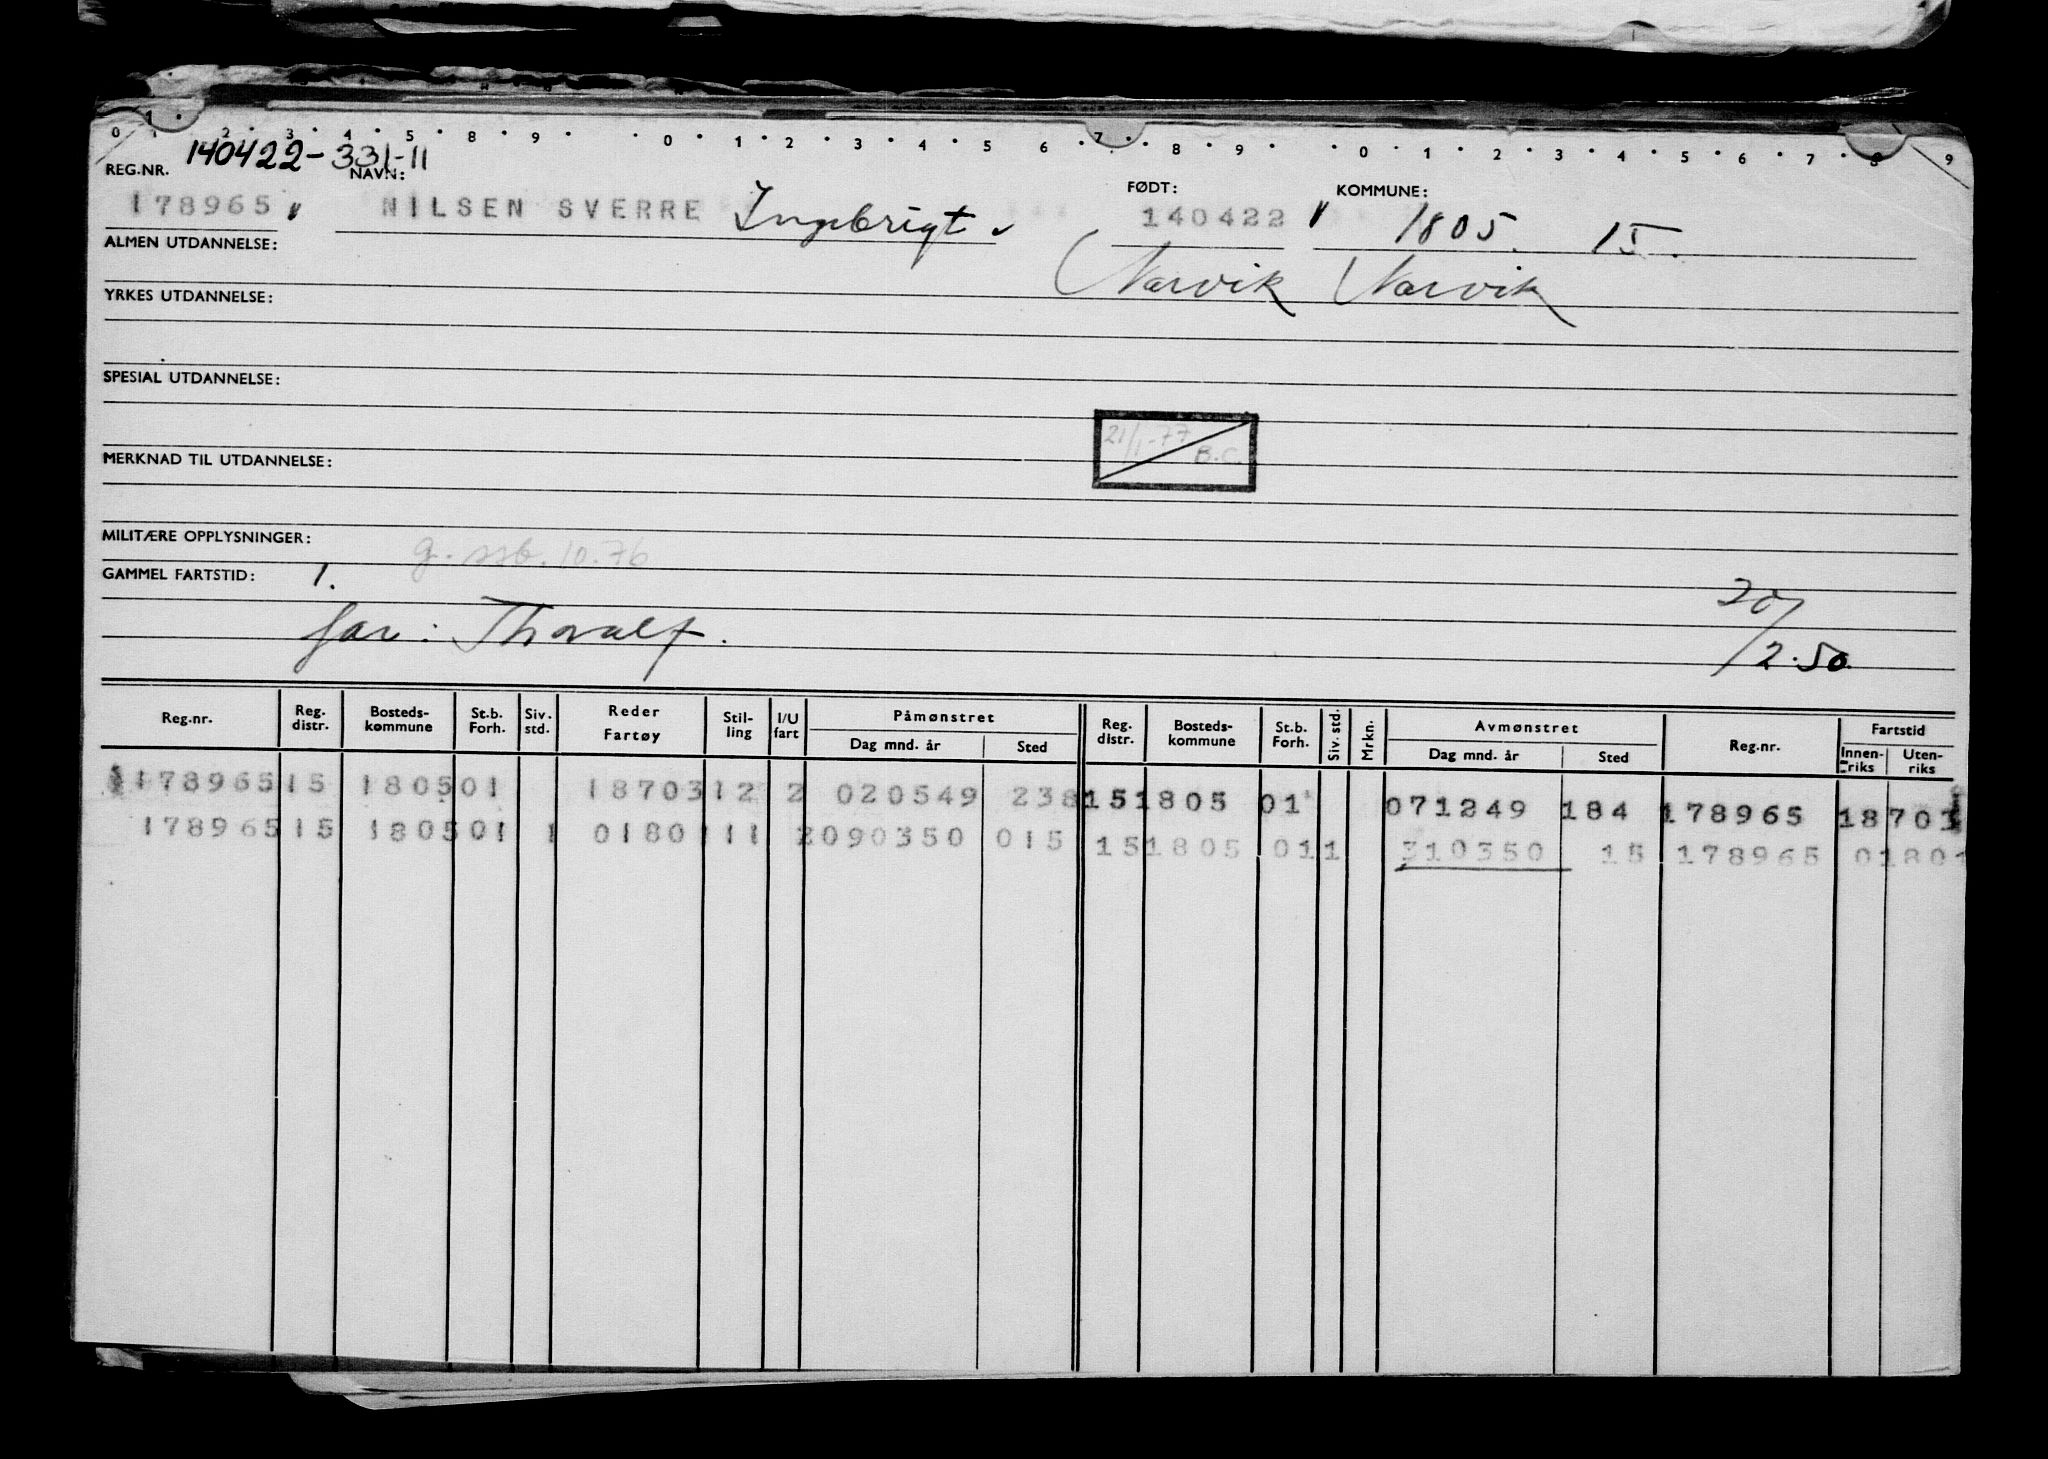 0 1 2 3 4 5 8 9 0 1 2 3 4 5 6 7 8 9 0 1 2 3 4 5 6 7 8 9
140422-331-11
REG.NR. NAVN: FØDT: KOMMUNE:
178965 NILSEN SVERRE Ingebrigt 140422 1805. 15.
ALMEN UTDANNELSE: Narvik Narvik
YRKES UTDANNELSE:
SPESIAL UTDANNELSE:
21/1-77 B.C.
MERKNAD TIL UTDANNELSE:
MILITÆRE OPPLYSNINGER:
g. ssb. 10.76
GAMMEL FARTSTID: 1.
far: Thoralf. 20/2.50
Reg.nr. Reg. distr. Bosteds- kommune St.b. Forh. Siv. std. Reder Fartøy Stil- ling I/U fart Påmønstret Dag mnd. år Sted Reg. distr. Bosteds- kommune St.b. Forh. Siv. std. Mrkn. Avmønstret Dag mnd. år Sted Reg.nr. Fartstid Innen- riks Uten- riks
178965 15 1805 01 18703 12 2 020549 238 15 1805 01 071249 184 178965 18703
178965 15 1805 01 1 0180 1 11 2 090350 015 15 1805 01 1 310350 15 178965 01801